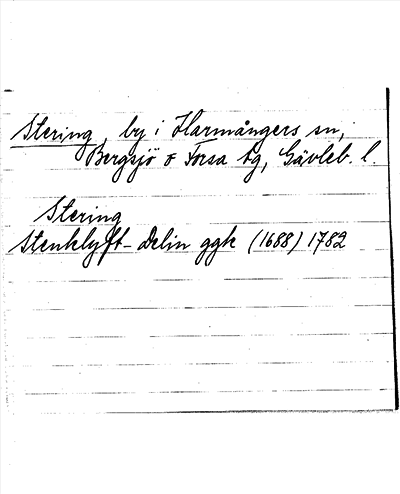 Stering, by i Harmångers sn,
Bergsjö o Forsa tg, Gävleb. l.
Stering
Stenklyft-delin ggk (1688) 1782